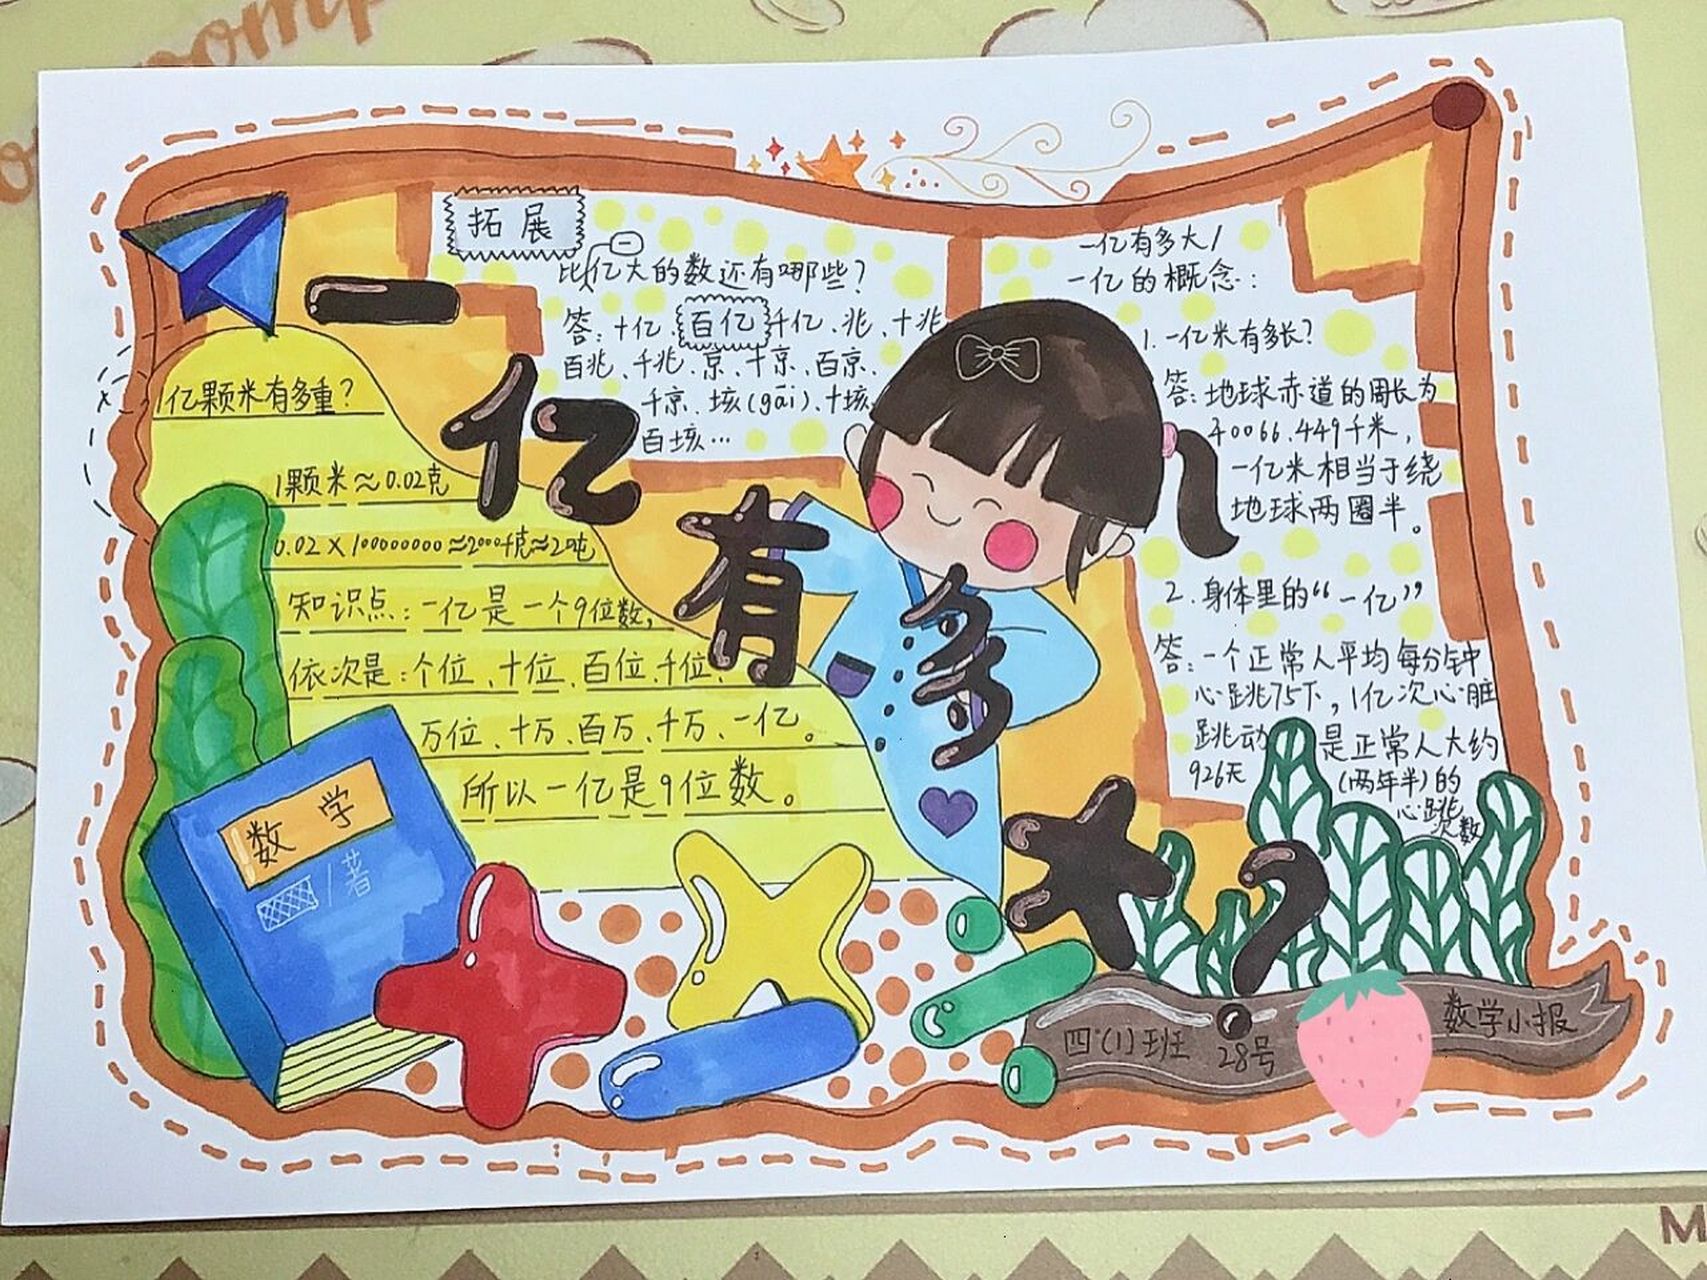 一亿有多大?
拓展
比亿大的数还有哪些?
答:十亿、百亿、千亿、兆、十兆
百兆、千兆、京、十京、百京、
千京、垓(gāi)、十垓
百垓…
1亿颗米有多重?
1颗米≈0.02克
0.02×100000000≈2000千克≈2吨
知识点:一亿是一个9位数,
依次是:个位、十位、百位、千位、
万位、十万、百万、千万、一亿。
所以一亿是9位数。
数学
著
一亿有多大/
一亿的概念:
1.一亿米有多长?
答:地球赤道的周长为
40066.449千米,
一亿米相当于绕
地球两圈半。
2.身体里的“一亿”
答:一个正常人平均每分钟
心跳75下,1亿次心脏
跳动 是正常人大约
926天 (两年半)的
心跳次数
四(1)班 28号
数学小报
M